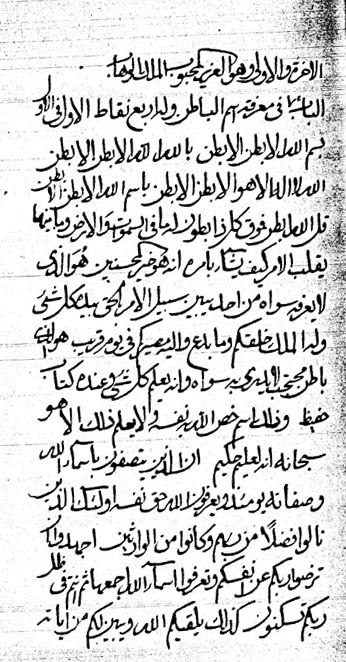 الاخرة والاولى وهو العزيز المحبوب الملك الوهاب
الباب في معرفة اسم الباطن وله اربع نقاط الاول في الاول
بسم الله الابطن الابطن بالله الله الابطن الابطن
الله لا اله الا هو الابطن الابطن باسم الله الابطن الابطن
قل الله ابطن فوق كل ذا بطون في السموات والارض وما بينهما
يقلب الامر كيف يشآء بامره انه هو خير المحسنين هو الذي
لا يعرفه سواه من احد يبين سبيل الامر الحق بيده كل شئ
وله الملك خلقكم وما بدع واليه مصيركم في يوم قريب هو الذي
باطن محتجب لا يدري به سواه وانه يعلم كل شئ وعنده كتاب
حفيظ وذلك اسم خص الله بنفسه ولا يعلم ذلك الا هو
سبحانه انه لعليم حكيم ان الذين يتصفون باسمآء الله
وصفاته يومئذ ويعرفون الله حق نفسه اولئك الذين
نالوا فضلا من ربهم وكانوا من الوارثين
ربكم عن انفسكم وتعرفوا اسمآء الله اجمعها ثم في ظل
ربكم تسكنون كذلك يلقيكم الله ويبين لكم من اياته